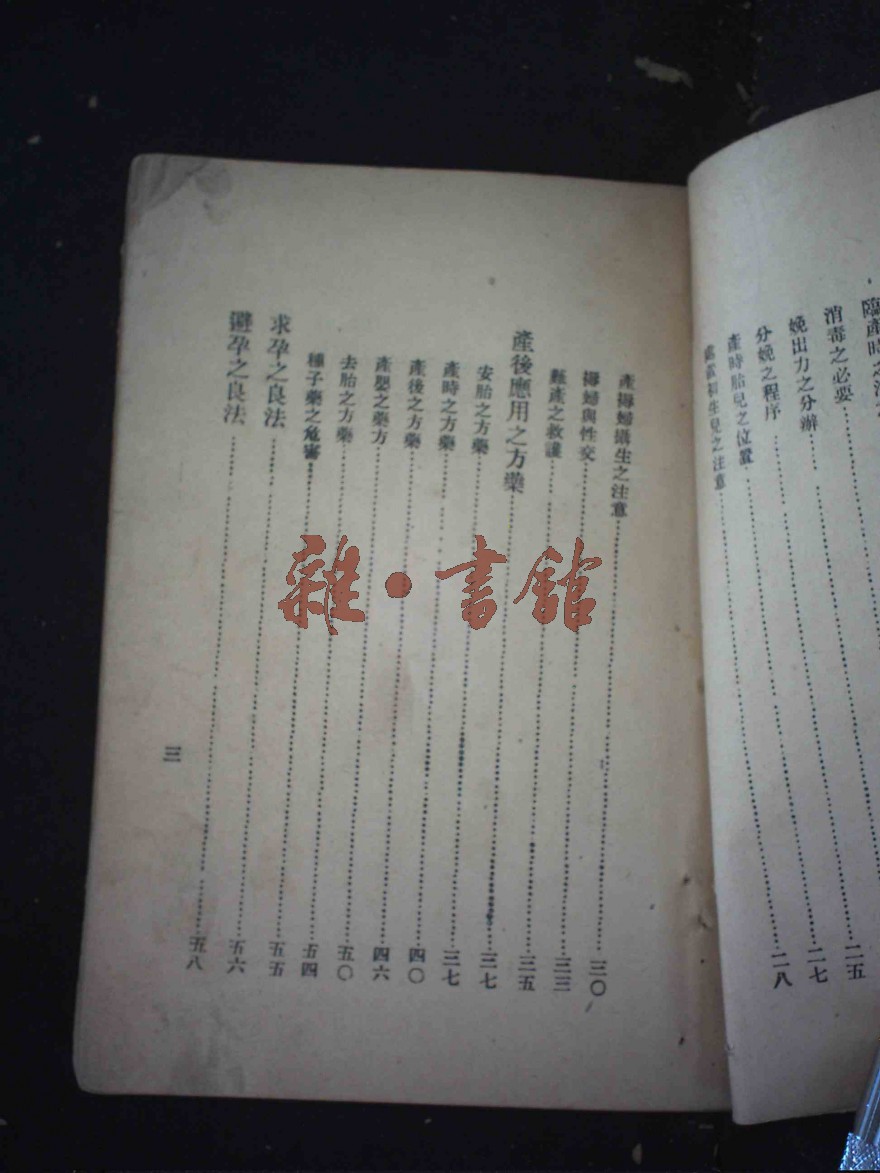 消毒之必要
娩出力之分辨 二五
分娩之程序 二七
產時胎兒之位置 二八
初生兒之注意
產褥婦攝生之注意 三〇
褥婦與性交 三三
難產之救護 三五
產後應用之方藥 三七
安胎之方藥 三七
產時之方藥 四〇
產後之方藥 四六
產嬰之藥方 五〇
去胎之方藥 五四
種子藥之危害 五五
求孕之良法 五六
避孕之良法 五八
三
雜·書館